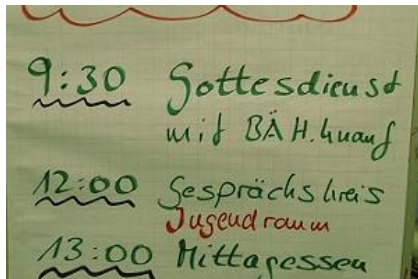 9:30 Gottesdienst
mit BÄ H. Knauf
12:00 Gesprächskreis
Jugendraum
13:00 Mittagessen